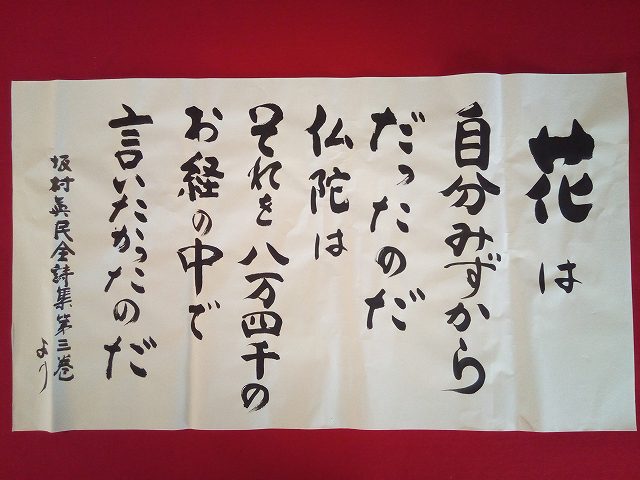 花は
自分みずから
だったのだ
仏陀は
それを八万四千の
お経の中で
言いたかったのだ
坂村眞民全詩集第三巻
より